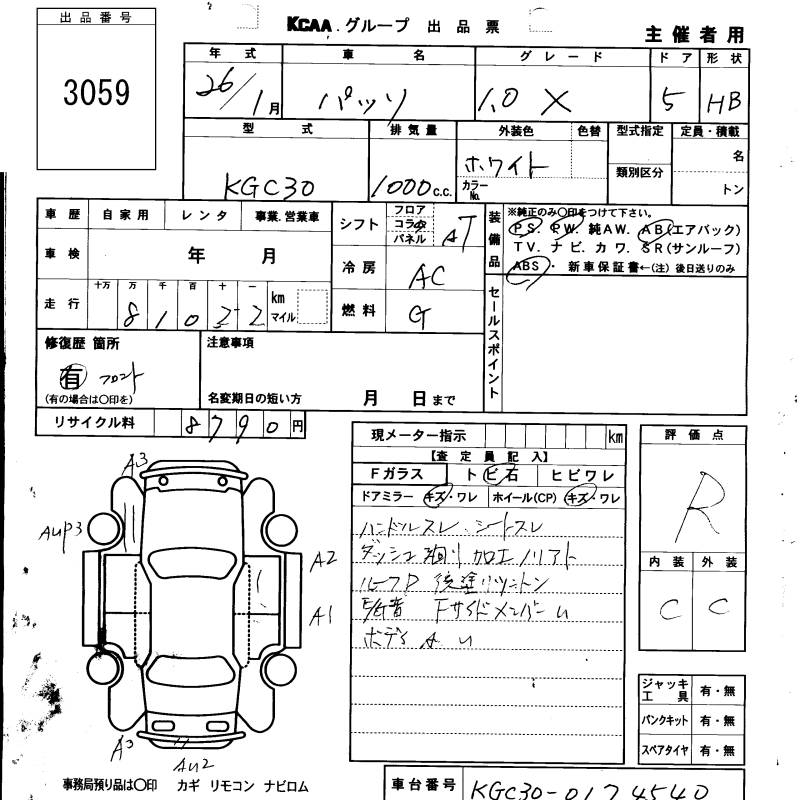 出品番号
3059
KCAA.グループ 出品票
主催者用
年式 車名 グレード ドア 形状
26/1月 パッソ 1.0 X 5 HB
型式 排気量 外装色 色替 型式指定 定員・積載
KGC30 1000c.c. ホワイト カラーNo. 類別区分 名 トン
車歴 自家用 レンタ 事業.営業車
シフト フロア コラム パネル AT
装備品
※純正のみ〇印をつけて下さい。
PS. PW. 純AW. AB(エアバック)
TV. ナビ. カワ. SR(サンルーフ)
ABS・新車保証書←(注)後日送りのみ
車検 年 月
冷房 AC
走行 十万 万 千 百 十 一 km マイル
81032
燃料 G
セールスポイント
修復歴 箇所
有 フロント
(有の場合は〇印を)
注意事項
名変期日の短い方 月 日まで
リサイクル料 8790円
現メーター指示 km
評価点
R
【査定員記入】
Fガラス トビ石 ヒビワレ
ドアミラー キズ・ワレ ホイール(CP) キズ・ワレ
ハンドルスレ、シートスレ
ダッシュ 加工ノリアト
ルーフP
Fサイドメンバーu
ボディ A u
内装 外装
C C
ジャッキ工具 有・無
パンクキット 有・無
スペアタイヤ 有・無
A3
AUP3
A2
A1
A3
AU2
事務局預り品は〇印 カギ リモコン ナビロム
車台番号 KGC30-0174540